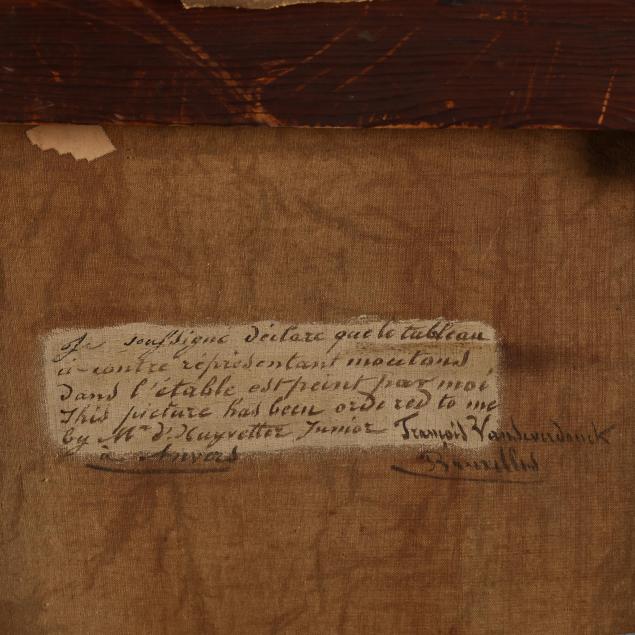 Je soussigné déclare que le tableau
ci-contre réprésentant moutons
dans l'étable est peint par moi
This picture has been ordered to me
by Mr. d'Huyvetter Junior François Vandeverdonck
à Anvers Bruxelles